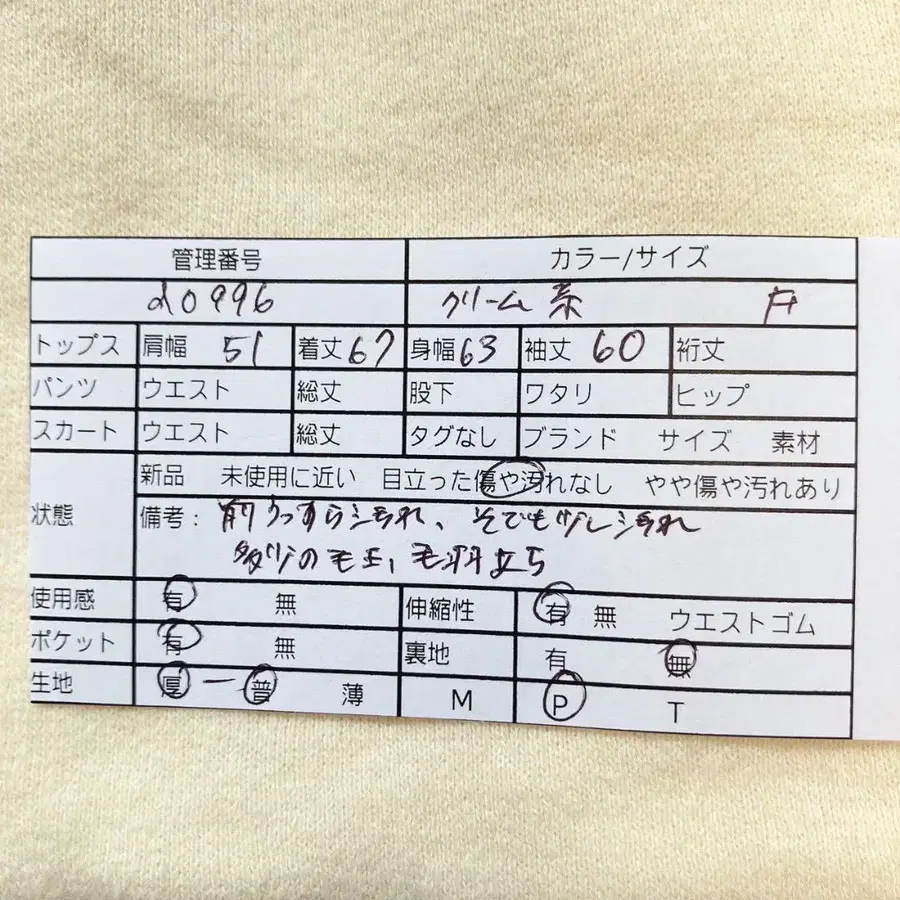 管理番号 カラー/サイズ
d0996 クリーム系
トップス 肩幅 51 着丈 67 身幅 63 袖丈 60 裄丈
パンツ ウエスト 総丈 股下 ワタリ ヒップ
スカート ウエスト 総丈 タグなし ブランド サイズ 素材
状態 新品 未使用に近い 目立った傷や汚れなし やや傷や汚れあり
備考: 前うっすらシミ汚れ、そでも少しシミ汚れ
多少の毛玉、毛羽立ち
使用感 有 無 伸縮性 有 無 ウエストゴム
ポケット 有 無 裏地 有 無
生地 厚 ー 普 薄 M P T